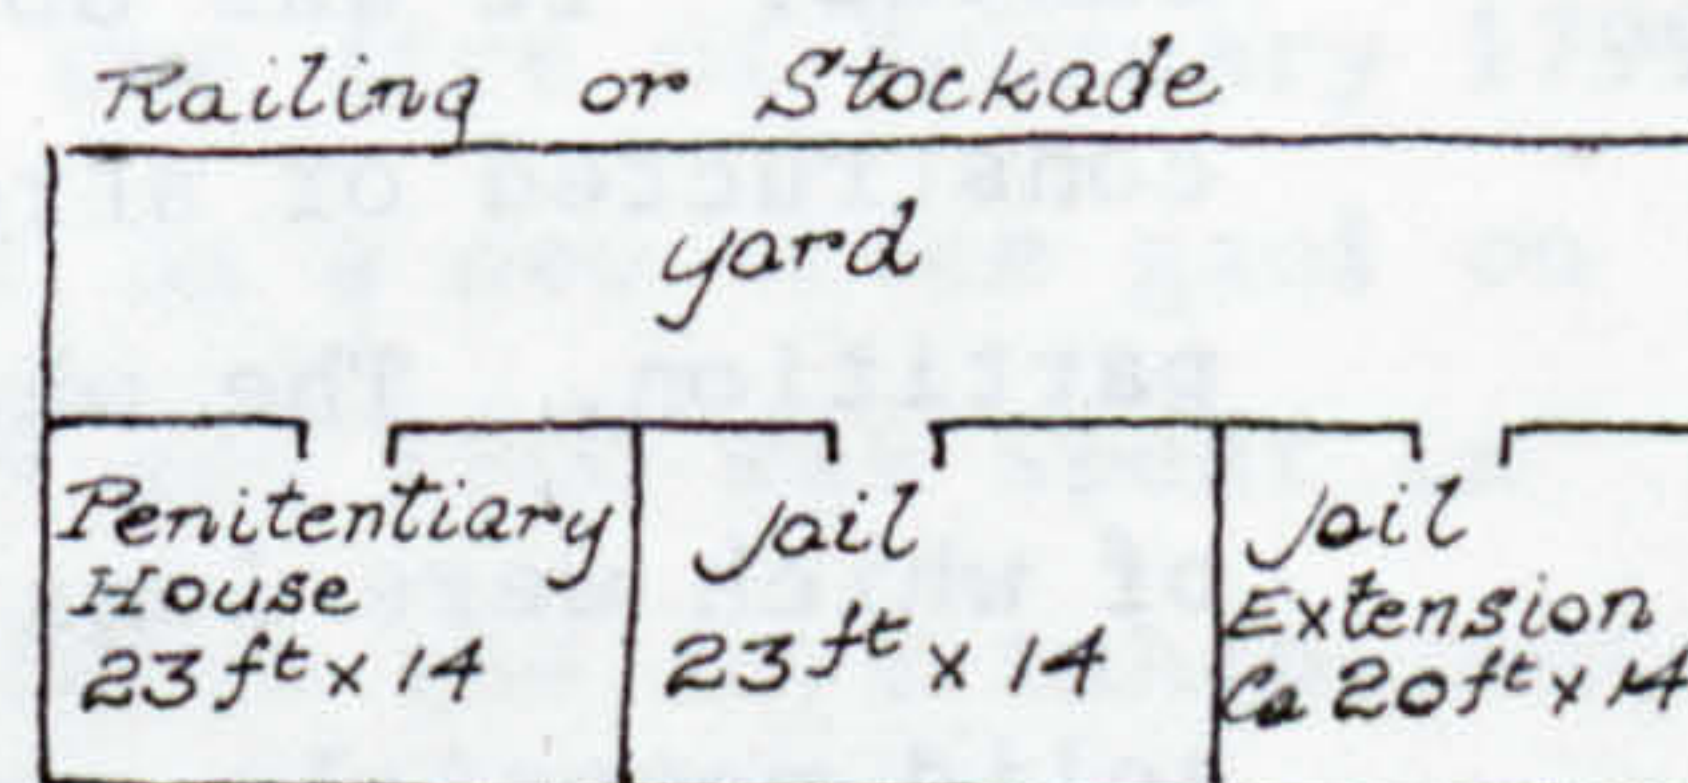 Railing or Stockade
yard
Penitentiary
House
23 ft x 14
Jail
23 ft x 14
Jail
Extension
Ca 20 ft x 14